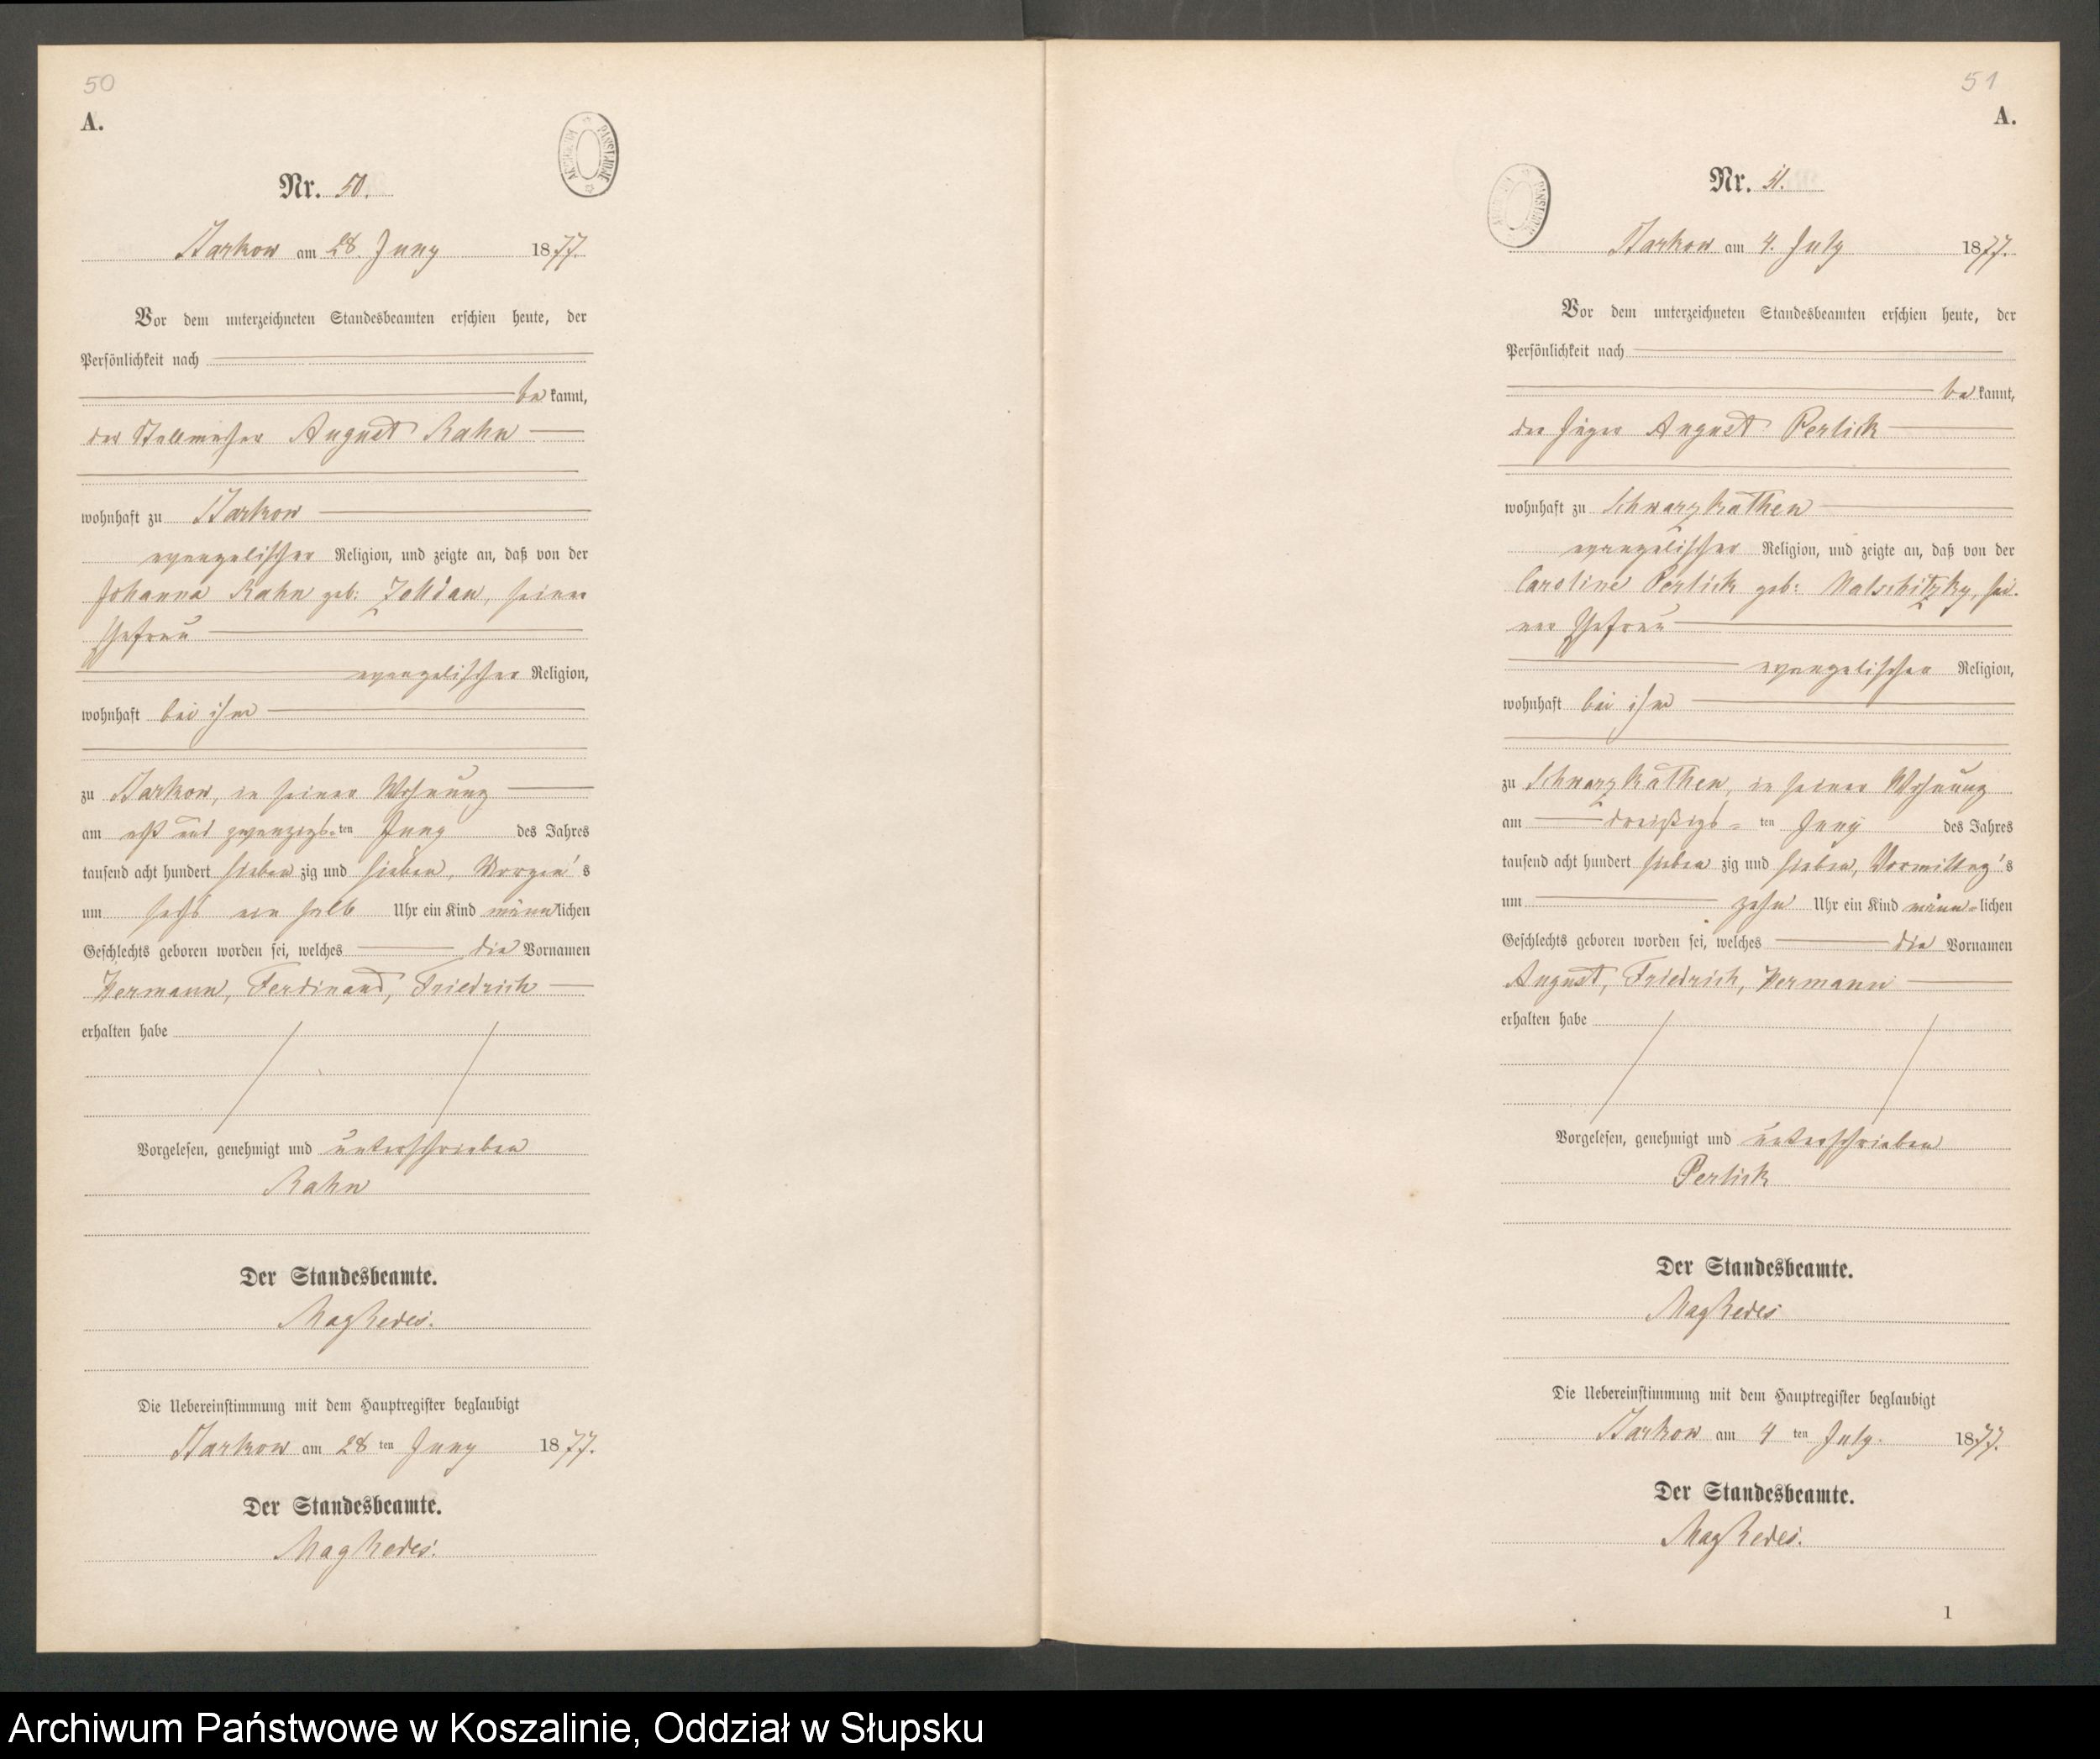 50
A.
Nr. 50.
Starkow am 28. Juny 1877.
Vor dem unterzeichneten Standesbeamten erschien heute, der
Persönlichkeit nach
be kannt,
der Stellmacher August Rahn
wohnhaft zu Starkow
evangelischer Religion, und zeigte an, daß von der
Johanna Rahn geb: Zolldan, seiner
Ehefrau
evangelischer Religion,
wohnhaft bei ihm
zu Starkow, in seiner Wohnung
am acht und zwanzigs-ten Juny des Jahres
tausend acht hundert sieben zig und sieben, Morgen's
um sechs ein halb Uhr ein Kind männlichen
Geschlechts geboren worden sei, welches die Vornamen
Hermann, Ferdinand, Friedrich
erhalten habe
Vorgelesen, genehmigt und unterschrieben
Rahn
Der Standesbeamte.
Die Uebereinstimmung mit dem Hauptregister beglaubigt
Starkow am 28 ten Juny 1877.
Der Standesbeamte.
51
A.
Nr. 51.
Starkow am 4. July 1877.
Vor dem unterzeichneten Standesbeamten erschien heute, der
Persönlichkeit nach
be kannt,
der Jäger August Perlick
wohnhaft zu Schwarzkathen
evangelischer Religion, und zeigte an, daß von der
Caroline Perlick geb: Malschitzky, sei-
ner Ehefrau
evangelischer Religion,
wohnhaft bei ihm
zu Schwarzkathen, in seiner Wohnung
am dreißigs- ten Juny des Jahres
tausend acht hundert sieben zig und sieben, Vormittag's
um zehn Uhr ein Kind männ-lichen
Geschlechts geboren worden sei, welches die Vornamen
August, Friedrich, Hermann
erhalten habe
Vorgelesen, genehmigt und unterschrieben
Perlick
Der Standesbeamte.
Die Uebereinstimmung mit dem Hauptregister beglaubigt
Starkow am 4 ten July. 1877.
Der Standesbeamte.
1
Archiwum Państwowe w Koszalinie, Oddział w Słupsku